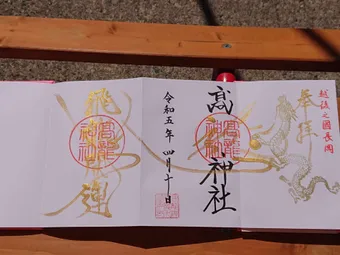 越後之國長岡
奉拝
髙神社
髙龍神社
令和五年四月十日
髙龍神社